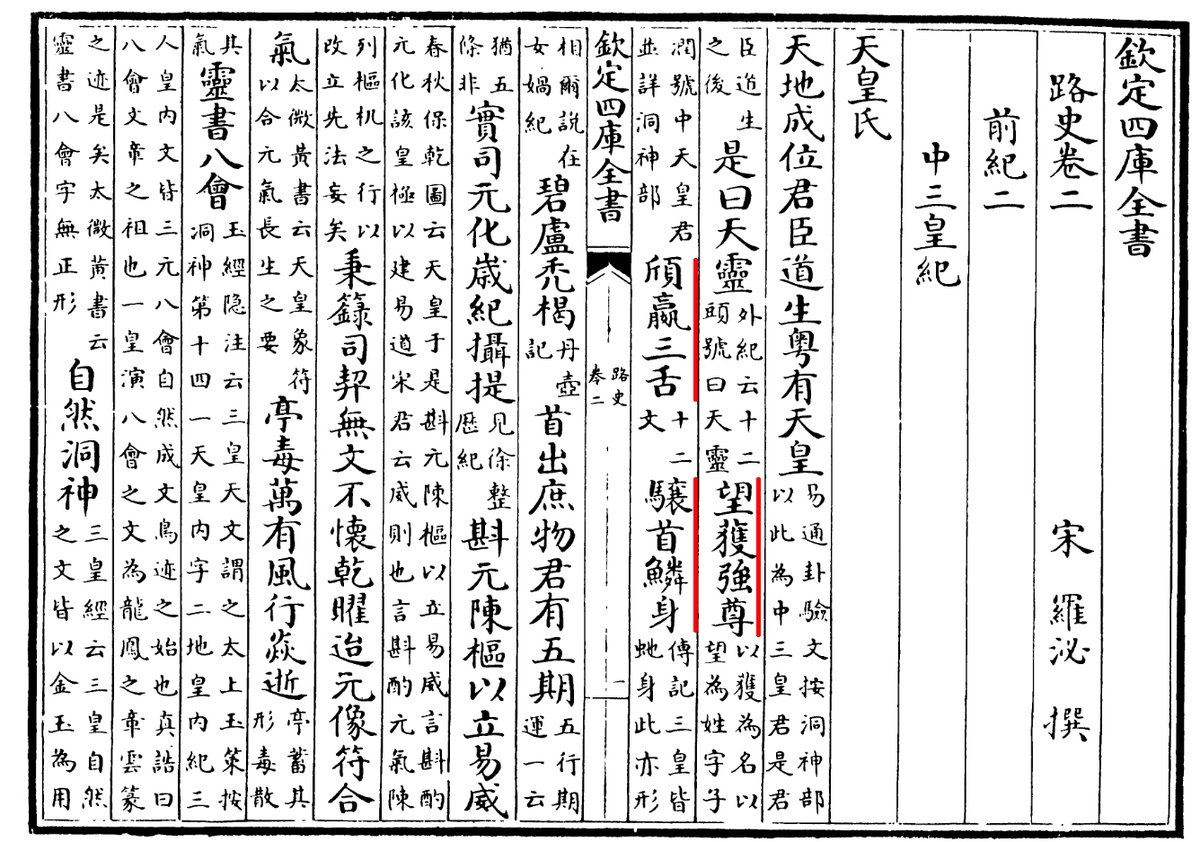 欽定四庫全書
路史卷二 宋 羅泌 撰
前紀二
中三皇紀
天皇氏
天地成位君臣道生粤有天皇易通卦驗文按洞神部以此為中三皇君是君
臣道生之後是曰天靈外紀云十二頭號曰天靈望獲強尊以獲為名以望為姓字子
潤號中天皇君並詳洞神部頎羸三舌十二文驤首鱗身傳記三皇皆虵身此亦形
欽定四庫全書 路史卷二 一
相爾說在女媧紀碧盧禿楬丹壺記首出庶物君有五期五行期運一云
猶五條非實司元化嵗紀攝提見徐整歴紀斟元陳樞以立易威
春秋保乾圖云天皇于是斟元陳樞以立易威言斟酌元化該皇極以建易道宋君云威則也言斟酌元氣陳
列樞机之行以改立先法妄矣秉籙司契無文不懷乾曜迨元像符合
氣太微黃書云天皇象符以合元氣長生之要亭毒萬有風行焱逝亭蓄其形毒散
其氣靈書八會玉經隐注云三皇天文謂之太上玉策按洞神第十四一天皇内字二地皇内紀三
人皇内文皆三元八會自然成文鳥迹之始也真誥曰八會文章之祖也一皇演八會之文為龍鳳之章雲篆
之迹是矣太微黃書云靈書八會字無正形自然洞神三皇經云三皇自然之文皆以金玉為用